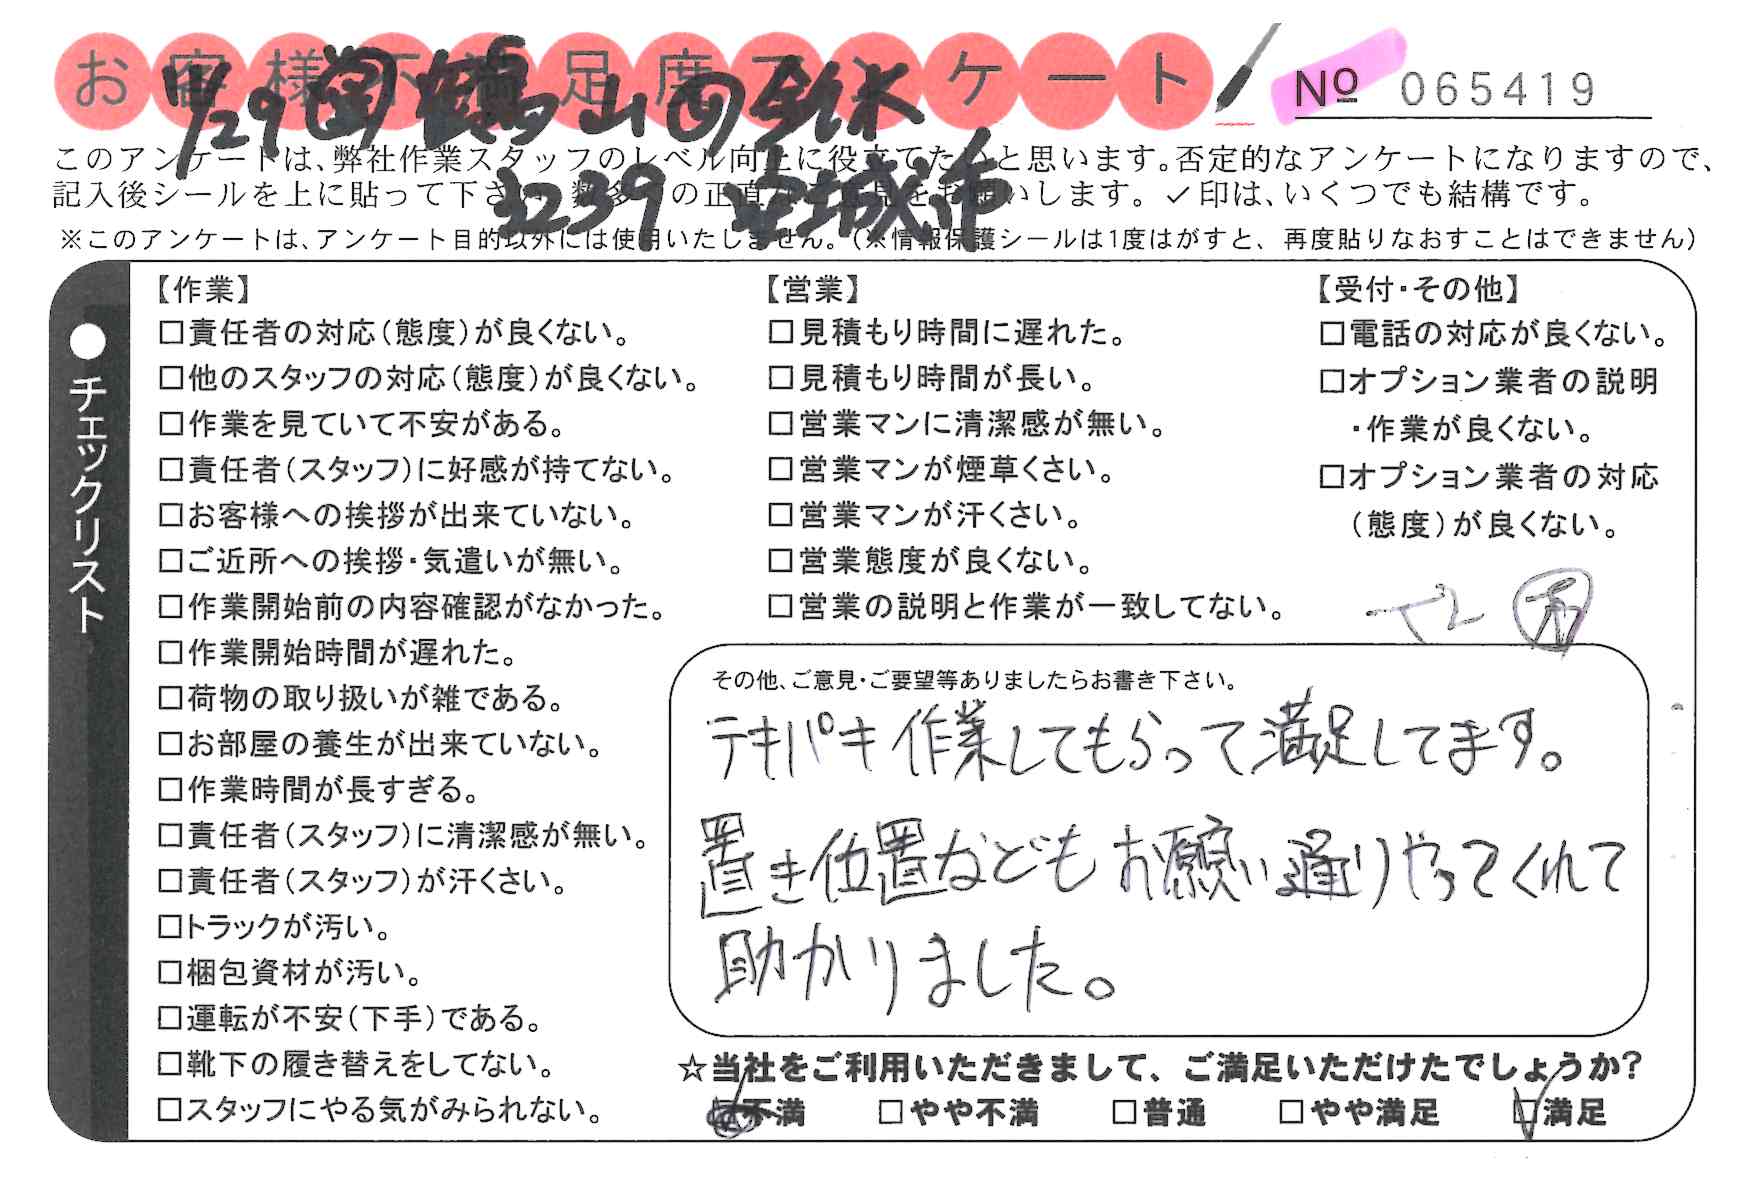 お客様不満足度アンケート
No 065419
このアンケートは、弊社作業スタッフのレベル向上に役立てたいと思います。否定的なアンケートになりますので、
記入後シールを上に貼って下さい。数多くの正直なご意見をお願いします。✓印は、いくつでも結構です。
※このアンケートは、アンケート目的以外には使用いたしません。(※情報保護シールは1度はがすと、再度貼りなおすことはできません)
3239
●チェックリスト
【作業】
□責任者の対応(態度)が良くない。
□他のスタッフの対応(態度)が良くない。
□作業を見ていて不安がある。
□責任者(スタッフ)に好感が持てない。
□お客様への挨拶が出来ていない。
□ご近所への挨拶・気遣いが無い。
□作業開始前の内容確認がなかった。
□作業開始時間が遅れた。
□荷物の取り扱いが雑である。
□お部屋の養生が出来ていない。
□作業時間が長すぎる。
□責任者(スタッフ)に清潔感が無い。
□責任者(スタッフ)が汗くさい。
□トラックが汚い。
□梱包資材が汚い。
□運転が不安(下手)である。
□靴下の履き替えをしてない。
□スタッフにやる気がみられない。
【営業】
□見積もり時間に遅れた。
□見積もり時間が長い。
□営業マンに清潔感が無い。
□営業マンが煙草くさい。
□営業マンが汗くさい。
□営業態度が良くない。
□営業の説明と作業が一致してない。
【受付・その他】
□電話の対応が良くない。
□オプション業者の説明
・作業が良くない。
□オプション業者の対応
(態度)が良くない。
その他、ご意見・ご要望等ありましたらお書き下さい。
テキパキ作業してもらって満足してます。
置き位置などもお願い通りやってくれて
助かりました。
☆当社をご利用いただきまして、ご満足いただけたでしょうか?
□不満 □やや不満 □普通 □やや満足 ☑満足